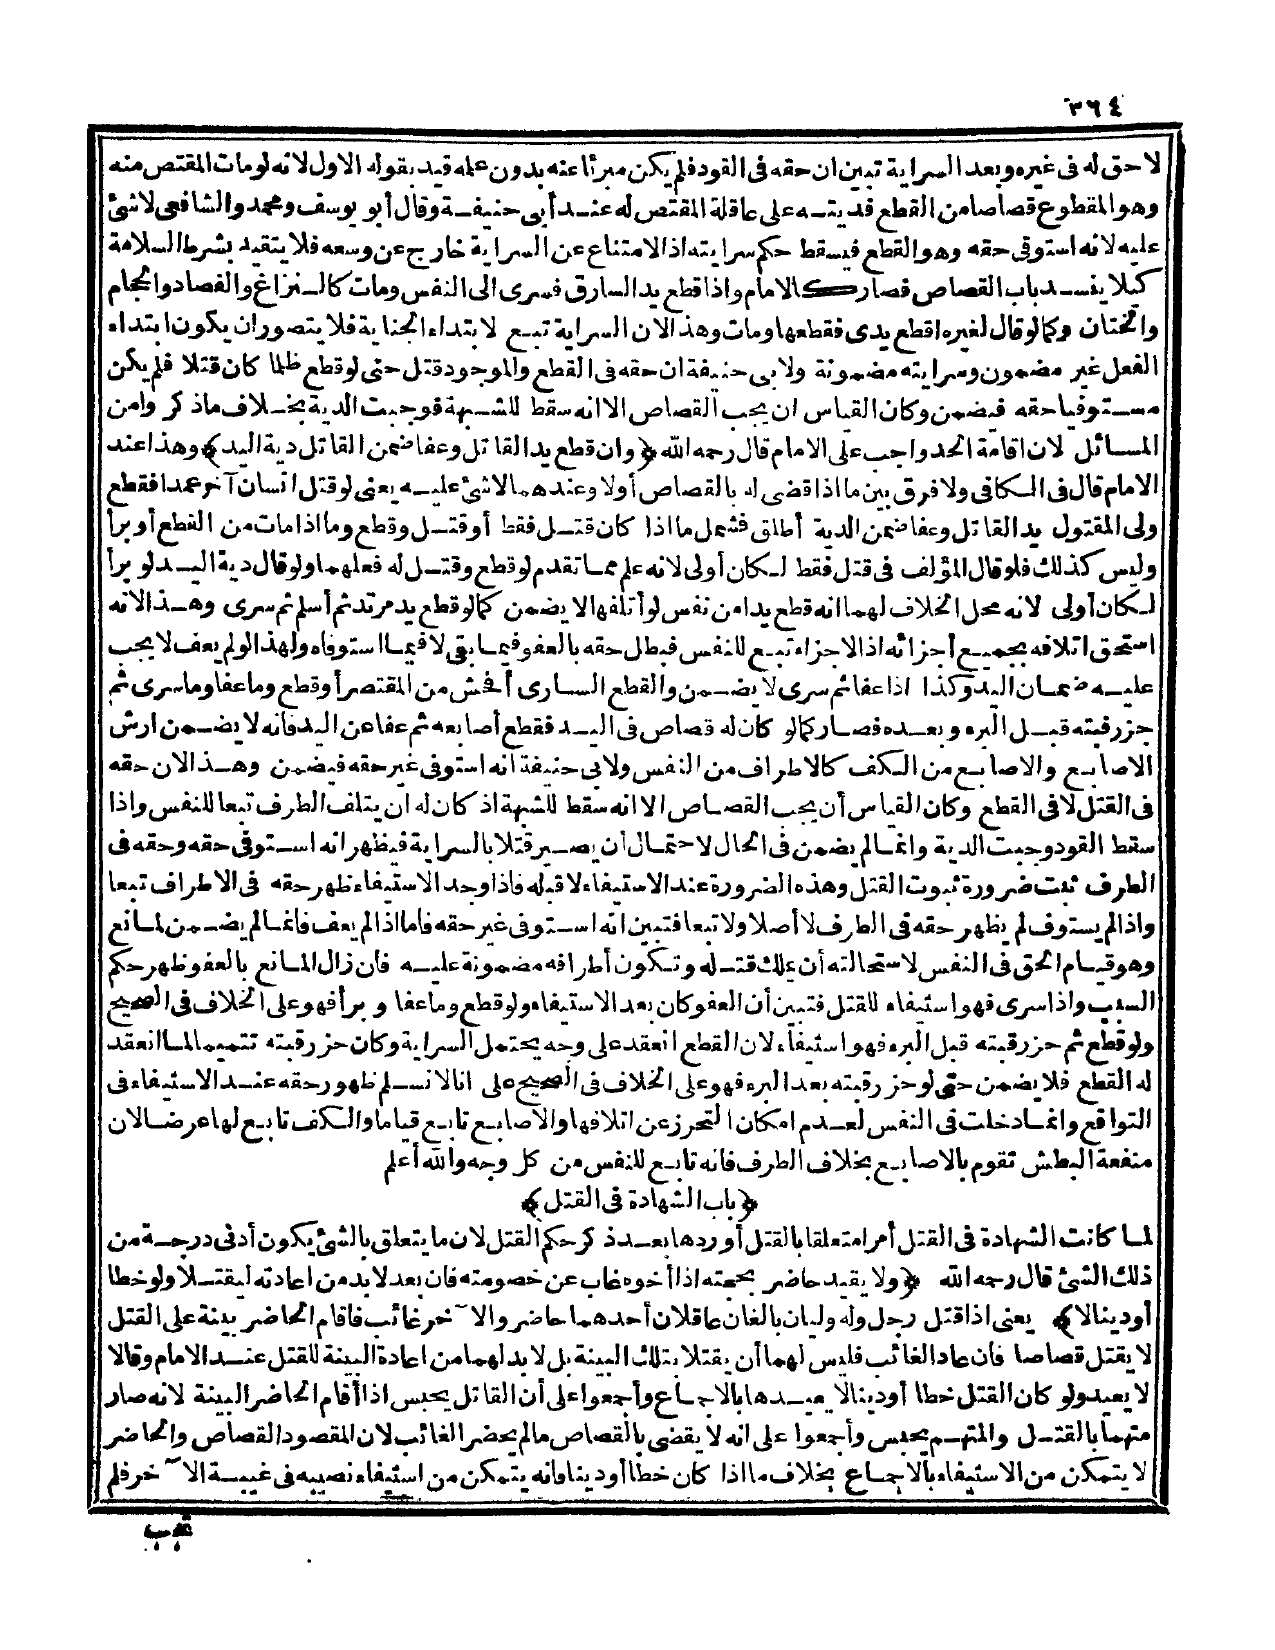 ٣٦٤
لا حق له فى غيره وبعد السراية تبين ان حقه فى القود فلم يكن مبرئا عنه بدون علمه قيد بقوله الاول لانه لو مات المقتص منه
وهو المقطوع قصاصا من القطع فديته على عاقلة المقتص له عند أبى حنيفة وقال أبو يوسف ومحمد والشافعى لا شئ
عليه لانه استوفى حقه وهو القطع فيسقط حكم سرايته اذ الامتناع عن السراية خارج عن وسعه فلا يتقيد بشرط السلامة
كيلا ينسد باب القصاص فصار كالامام واذا قطع يد السارق فسرى الى النفس ومات كالنزاغ والفصاد والحجام
والختان وكما لو قال لغيره اقطع يدى فقطعها ومات وهذا لان السراية تبع لابتداء الجناية فلا يتصور ان يكون ابتداء
الفعل غير مضمون وسرايته مضمونة ولابى حنيفة ان حقه فى القطع والموجود قتل حتى لو قطع ظلما كان قتلا فلم يكن
مستوفيا حقه فيضمن وكان القياس ان يجب القصاص الا انه سقط للشبهة فوجبت الدية بخلاف ماذكر وامن
المسائل لان اقامة الحد واجب على الامام قال رحمه الله ﴿وان قطع يد القاتل وعفا ضمن القاتل دية اليد﴾ وهذا عند
الامام قال فى الكافى ولا فرق بين ما اذا قضى له بالقصاص أولا وعندهما لا شئ عليه يعنى لو قتل انسان آخر عمدا فقطع
ولى المقتول يد القاتل وعفا ضمن الدية أطلق فشمل ما اذا كان قتل فقط أو قتل وقطع وما اذا مات من القطع أو برأ
وليس كذلك فلو قال المؤلف فى قتل فقط لكان أولى لانه علم مما تقدم لو قطع وقتل له فعلهما ولو قال دية اليد لو برأ
لكان أولى لانه محل الخلاف لهما انه قطع يدا من نفس لو أتلفها لا يضمن كما لو قطع يد مرتد ثم أسلم ثم سرى وهذا لانه
استحق اتلافه بجميع أجزائه اذ الاجزاء تبع للنفس فبطل حقه بالعفو فيما بقى لا فيما استوفاه ولهذا لو لم يعف لا يجب
عليه ضمان اليد وكذا اذا عفا ثم سرى لا يضمن والقطع السارى أفحش من المقتصر أو قطع وما عفا وما سرى ثم
حز رقبته قبل البرء وبعده فصار كما لو كان له قصاص فى اليد فقطع أصابعه ثم عفا عن اليد فانه لا يضمن ارش
الاصابع والاصابع من الكف كالاطراف من النفس ولابى حنيفة انه استوفى غير حقه فيضمن وهذا لان حقه
فى القتل لا فى القطع وكان القياس أن يجب القصاص الا انه سقط للشبهة اذ كان له ان يتلف الطرف تبعا للنفس واذا
سقط القود وجبت الدية وانما لم يضمن فى الحال لاحتمال أن يصير قتلا بالسراية فيظهر انه استوفى حقه وحقه فى
الطرف ثبت ضرورة ثبوت القتل وهذه الضرورة عند الاستيفاء لا قبله فاذا وجد الاستيفاء ظهر حقه فى الاطراف تبعا
واذا لم يستوف لم يظهر حقه فى الطرف لا أصلا ولا تبعا فتبين انه استوفى غير حقه فاما اذا لم يعف فانما لم يضمن لمانع
وهو قيام الحق فى النفس لاستحالته أن يملك قتله وتكون أطرافه مضمونة عليه فان زال المانع بالعفو ظهر حكم
السبب واذا سرى فهو استيفاء للقتل فتبين أن العفو كان بعد الاستيفاء ولو قطع وما عفا وبرأ فهو على الخلاف فى الصحيح
ولو قطع ثم حز رقبته قبل البرء فهو استيفاء لان القطع انعقد على وجه يحتمل السراية وكان حز رقبته تتميما لما انعقد
له القطع فلا يضمن حتى لو حز رقبته بعد البرء فهو على الخلاف فى الصحيح على انا لا نسلم ظهور حقه عند الاستيفاء فى
التوابع وانما دخلت فى النفس لعدم امكان التحرز عن اتلافها والاصابع تابع قياما والكف تابع لها عرضا لان
منفعة البطش تقوم بالاصابع بخلاف الطرف فانه تابع للنفس من كل وجه والله أعلم
﴿باب الشهادة فى القتل﴾
لما كانت الشهادة فى القتل أمرا متعلقا بالقتل أوردها بعد ذكر حكم القتل لان ما يتعلق بالشئ يكون أدنى درجة من
ذلك الشئ قال رحمه الله ﴿ولا يقيد حاضر بحجته اذا أخوه غاب عن خصومته فان يعد لا بد من اعادته ليقتلا ولو خطا
أو دينا لا﴾ يعنى اذا قتل رجل وله وليان بالغان عاقلان أحدهما حاضر والآخر غائب فاقام الحاضر بينة على القتل
لا يقتل قصاصا فان عاد الغائب فليس لهما أن يقتلا بتلك البينة بل لا بد لهما من اعادة البينة للقتل عند الامام وقالا
لا يعيد ولو كان القتل خطا أو دينا لا يعيدها بالاجماع وأجمعوا على أن القاتل يحبس اذا أقام الحاضر البينة لانه صار
متهما بالقتل والمتهم يحبس وأجمعوا على انه لا يقضى بالقصاص ما لم يحضر الغائب لان المقصود القصاص والحاضر
لا يتمكن من الاستيفاء بالاجماع بخلاف ما اذا كان خطأ أو دينا فانه يتمكن من استيفاء نصيبه فى غيبة الآخر فلم